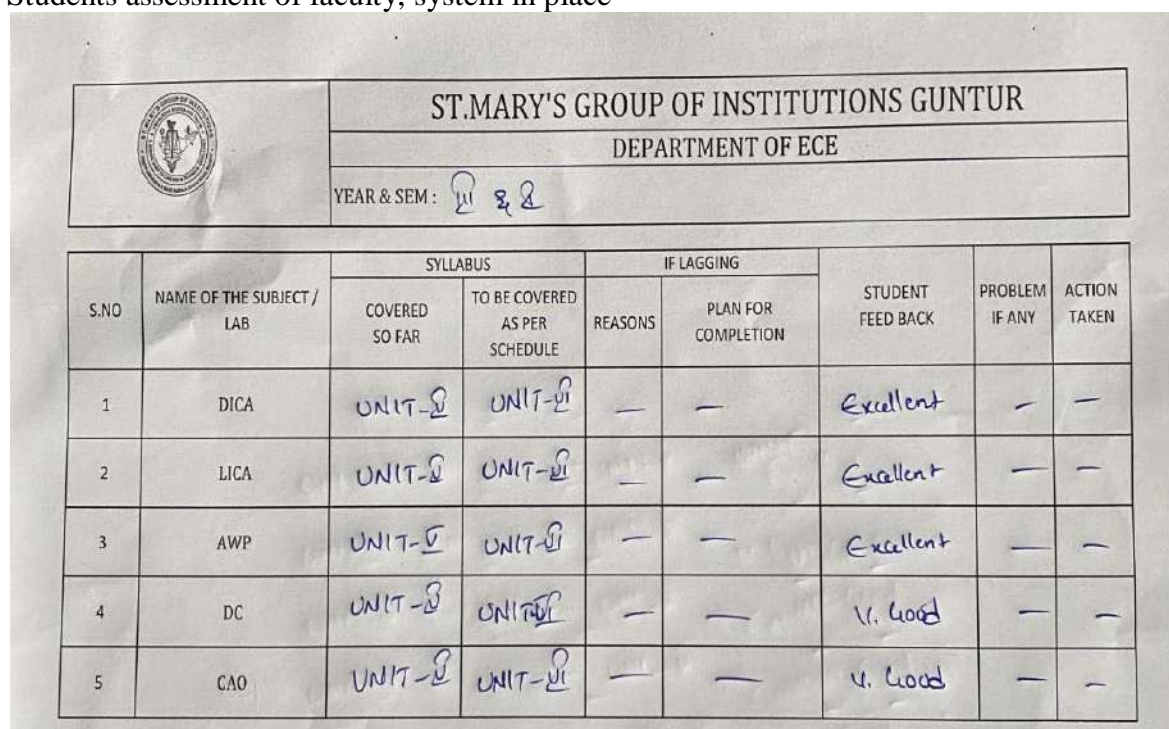 Students assessment of faculty, system in place
ST.MARY'S GROUP OF INSTITUTIONS GUNTUR
DEPARTMENT OF ECE
YEAR & SEM : III & I
S.NO NAME OF THE SUBJECT / LAB SYLLABUS COVERED SO FAR TO BE COVERED AS PER SCHEDULE IF LAGGING REASONS PLAN FOR COMPLETION STUDENT FEED BACK PROBLEM IF ANY ACTION TAKEN
1 DICA UNIT-V UNIT-VI — — Excellent — —
2 LICA UNIT-V UNIT-VI — — Excellent — —
3 AWP UNIT-V UNIT-VI — — Excellent — —
4 DC UNIT-V UNIT-VI — — V. Good — —
5 CAO UNIT-V UNIT-VI — — V. Good — —